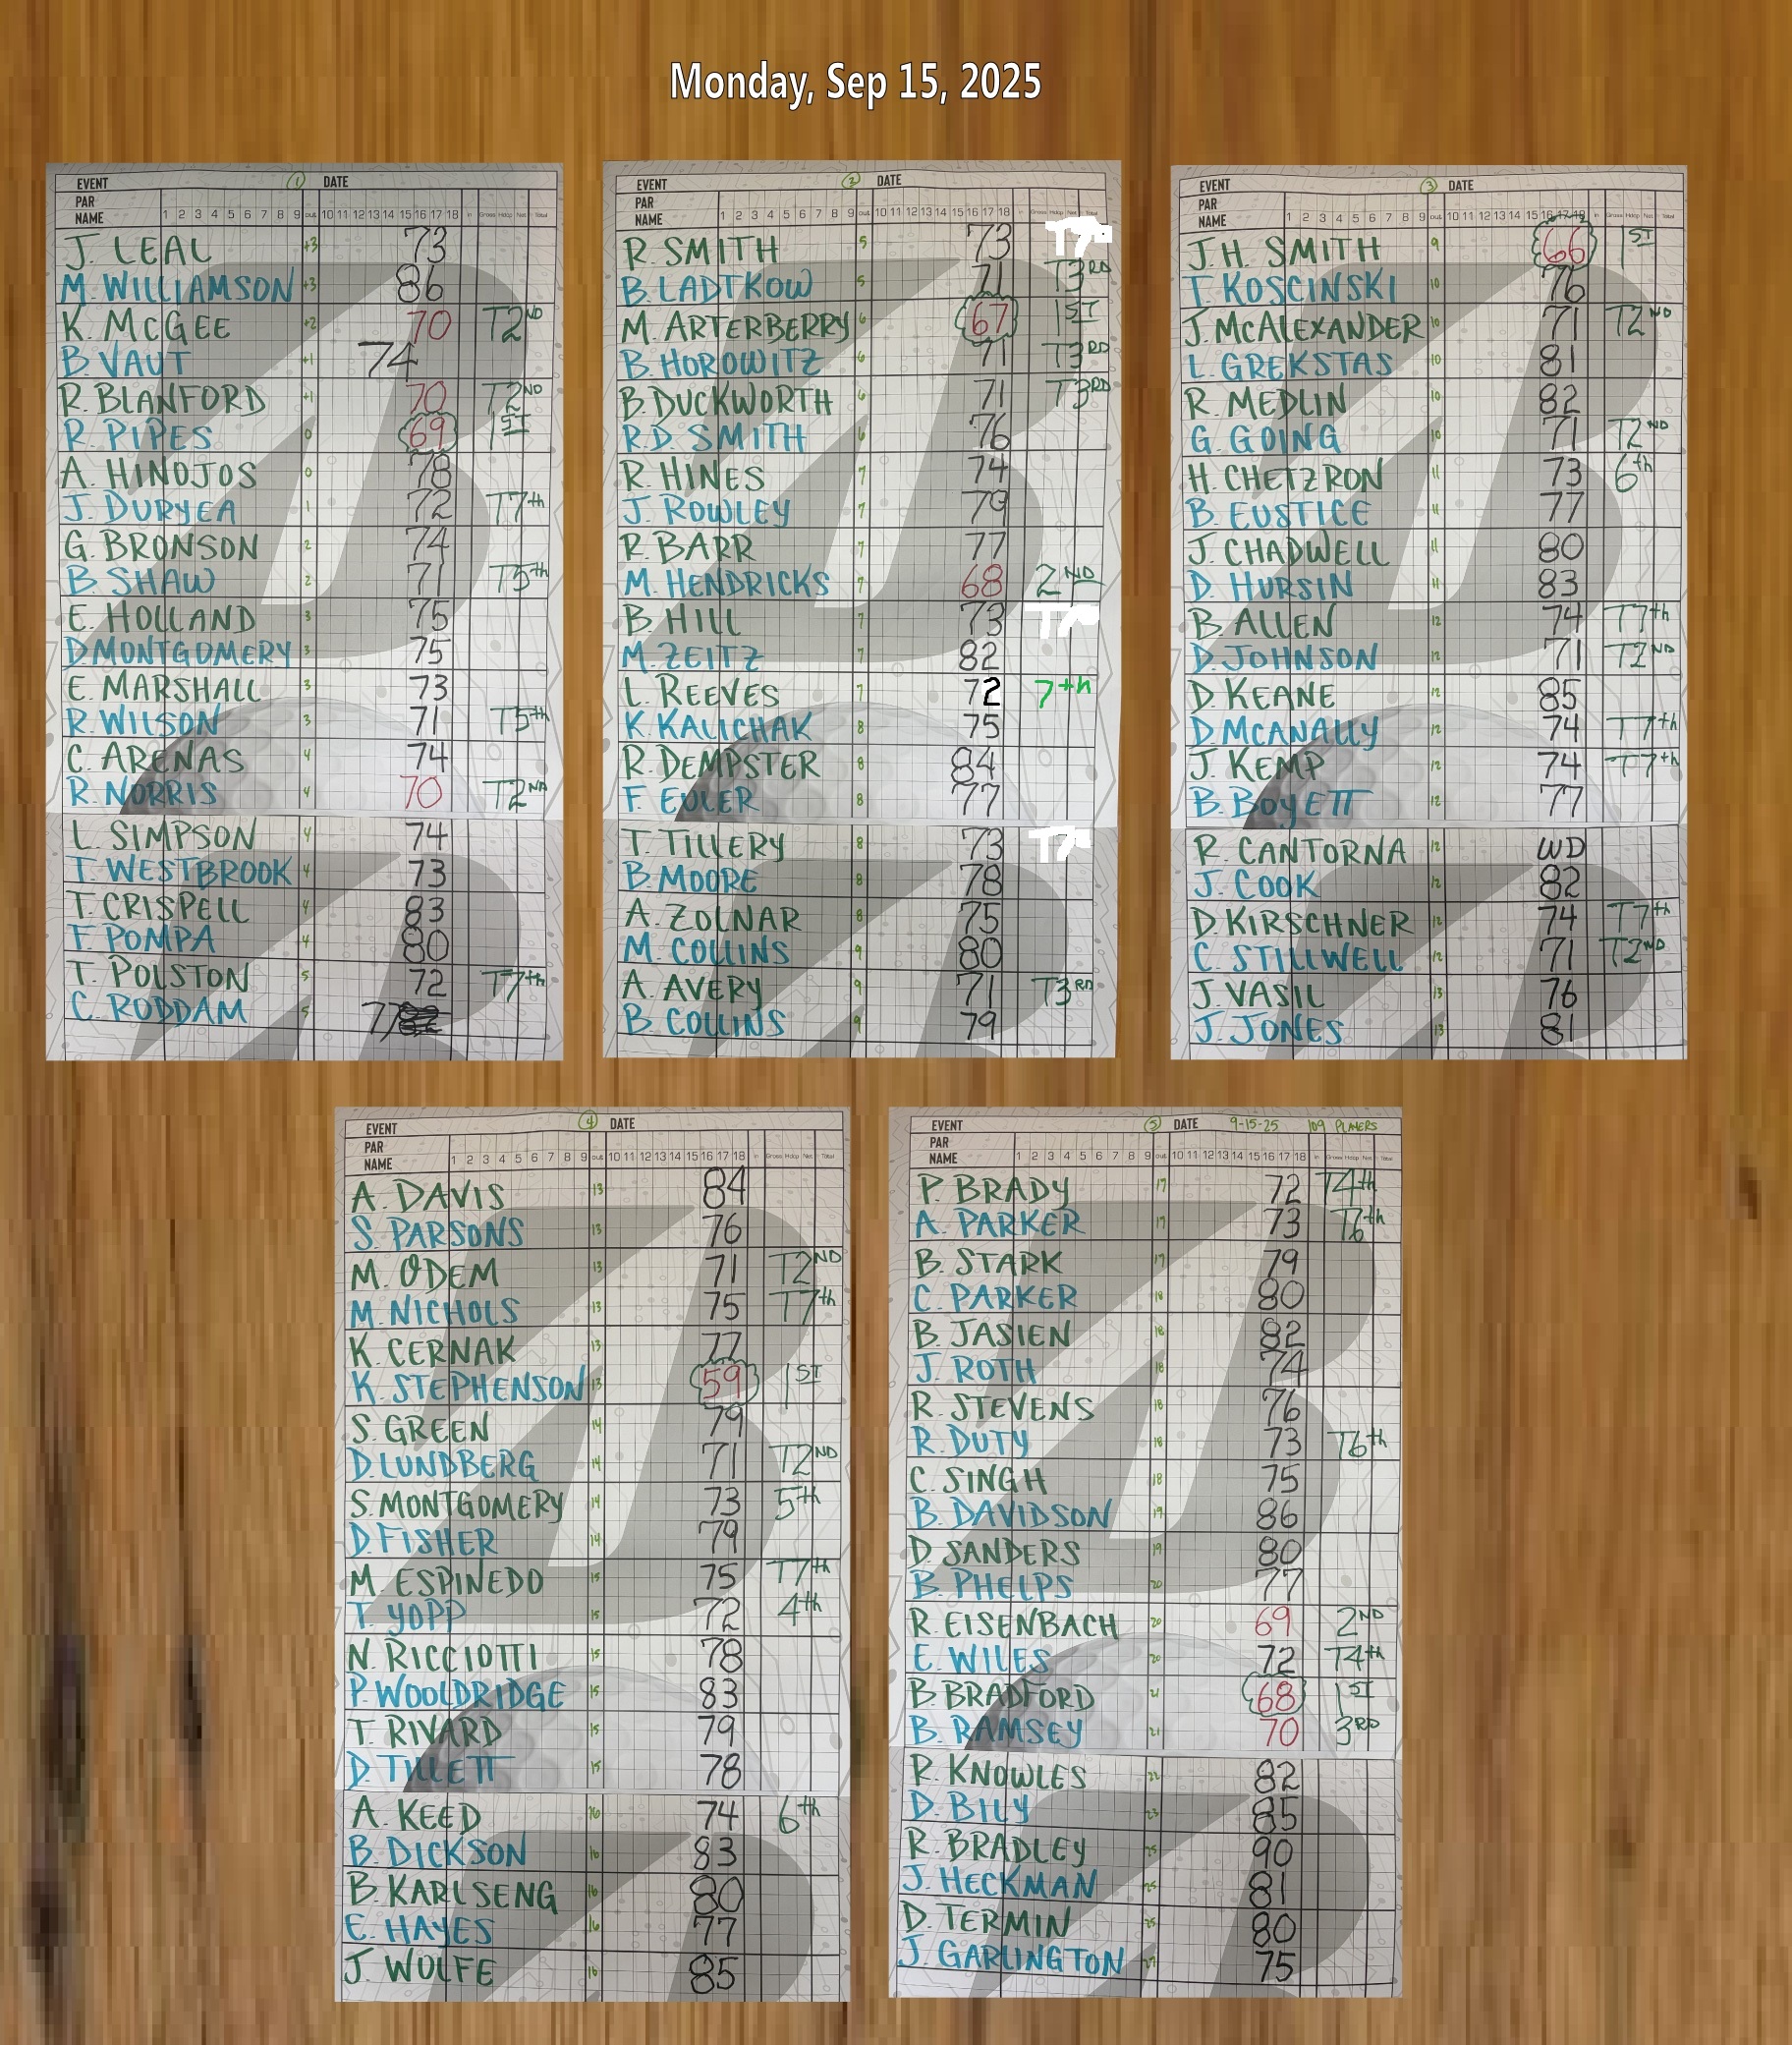 Monday, Sep 15, 2025
EVENT ① DATE
PAR
NAME 1 2 3 4 5 6 7 8 9 out 10 11 12 13 14 15 16 17 18 in Gross Hdcp Net Total
J. LEAL +3 73
M. WILLIAMSON +3 86
K. McGEE +2 70 T2ND
B. VAUT +1 74
R. BLANFORD +1 70 T2ND
R. PIPES 0 69 1ST
A. HINOJOS 0 78
J. DURYEA 1 72 T7th
G. BRONSON 2 74
B. SHAW 2 71 T5th
E. HOLLAND 3 75
D. MONTGOMERY 3 75
E. MARSHALL 3 73
R. WILSON 3 71 T5th
C. ARENAS 4 74
R. NORRIS 4 70 T2ND
L. SIMPSON 4 74
T. WESTBROOK 4 73
T. CRISPELL 4 83
F. POMPA 4 80
T. POLSTON 5 72 T7th
C. RODDAM 5 77
EVENT ② DATE
PAR
NAME 1 2 3 4 5 6 7 8 9 out 10 11 12 13 14 15 16 17 18 in Gross Hdcp Net Total
R. SMITH 5 73
B. LADTKOW 5 71 T3RD
M. ARTERBERRY 6 67 1ST
B. HOROWITZ 6 71 T3RD
B. DUCKWORTH 6 71 T3RD
R.D. SMITH 6 76
R. HINES 7 74
J. ROWLEY 7 79
R. BARR 7 77
M. HENDRICKS 7 68 2ND
B. HILL 7 73
M. ZEITZ 7 82
L. REEVES 7 72 7th
K. KALICHAK 8 75
R. DEMPSTER 8 84
F. EULER 8 77
T. TILLERY 8 73
B. MOORE 8 78
A. ZOLNAR 8 75
M. COLLINS 9 80
A. AVERY 9 71 T3RD
B. COLLINS 9 79
EVENT ③ DATE
PAR
NAME 1 2 3 4 5 6 7 8 9 out 10 11 12 13 14 15 16 17 18 in Gross Hdcp Net Total
J.H. SMITH 9 66 1ST
T. KOSCINSKI 10 76
J. McALEXANDER 10 71 T2ND
L. GREKSTAS 10 81
R. MEDLIN 10 82
G. GOING 10 71 T2ND
H. CHETZRON 11 73 6th
B. EUSTICE 11 77
J. CHADWELL 11 80
D. HURSIN 11 83
B. ALLEN 12 74 T7th
D. JOHNSON 12 71 T2ND
D. KEANE 12 85
D. McANALLY 12 74 T7th
J. KEMP 12 74 T7th
B. BOYETT 12 77
R. CANTORNA 12 WD
J. COOK 12 82
D. KIRSCHNER 12 74 T7th
C. STILLWELL 12 71 T2ND
J. VASIL 13 76
J. JONES 13 81
EVENT ④ DATE
PAR
NAME 1 2 3 4 5 6 7 8 9 out 10 11 12 13 14 15 16 17 18 in Gross Hdcp Net Total
A. DAVIS 13 84
S. PARSONS 13 76
M. ODEM 13 71 T2ND
M. NICHOLS 13 75 T7th
K. CERNAK 13 77
K. STEPHENSON 13 59 1ST
S. GREEN 14 79
D. LUNDBERG 14 71 T2ND
S. MONTGOMERY 14 73 5th
D. FISHER 14 79
M. ESPINEDO 15 75 T7th
T. YOPP 15 72 4th
N. RICCIOTTI 15 78
P. WOOLDRIDGE 15 83
T. RIVARD 15 79
D. TILLETT 15 78
A. KEED 16 74 6th
B. DICKSON 16 83
B. KARLSENG 16 80
E. HAYES 16 77
J. WOLFE 16 85
EVENT ⑤ DATE 9-15-25 109 PLAYERS
PAR
NAME 1 2 3 4 5 6 7 8 9 out 10 11 12 13 14 15 16 17 18 in Gross Hdcp Net Total
P. BRADY 17 72 T4th
A. PARKER 17 73 T6th
B. STARK 17 79
C. PARKER 18 80
B. JASIEN 18 82
J. ROTH 18 74
R. STEVENS 18 76
R. DUTY 18 73 T6th
C. SINGH 18 75
B. DAVIDSON 19 86
D. SANDERS 19 80
B. PHELPS 20 77
R. EISENBACH 20 69 2ND
E. WILES 20 72 T4th
B. BRADFORD 21 68 1ST
B. RAMSEY 21 70 3RD
R. KNOWLES 22 82
D. BILY 23 85
R. BRADLEY 25 90
J. HECKMAN 25 81
D. TERMIN 25 80
J. GARLINGTON 27 75